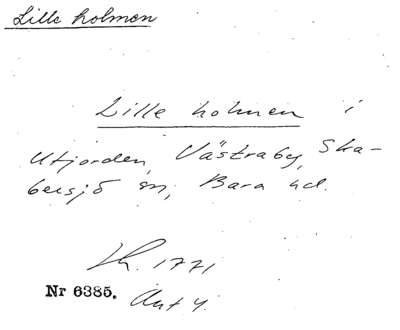 Lille holmen
Lille holmen i
Utjorden, Västraby, Ska-
bersjö sn, Bara hd.
1771
Nr 6385. Akt 4.